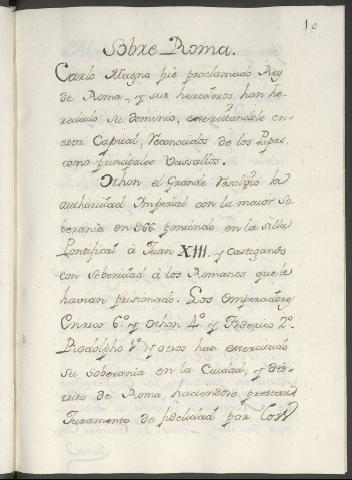 10
Sobre Roma.
Carlo Magno fue proclamado Rey
de Roma, y sus herederos han he-
redado su dominio, exercitandole en
esta Capital, reconocidos de los Papas
como principales Vassallos.
Othon el Grande resolvio la
authoridad Imperial con la maior so
berania en 966. poniendo en la silla
Pontifical à Juan XIII. y castigando
con seberidad à los Romanos que le
havian prisionado. Los emperadores
Enrico 6º y Othon 4º y Federico 2º
Rodolpho 1º y otros han exercitado
su soberania en la Ciudad, y dis-
trito de Roma, haciendose prestar
Juramento de fidelidad por los